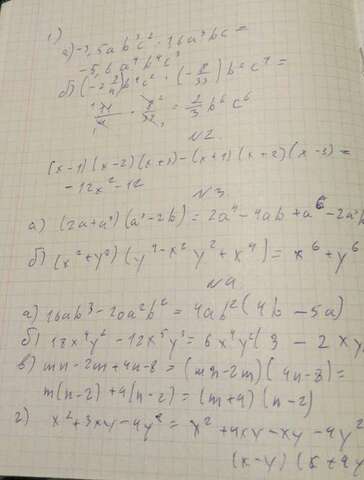 1)
а) -3,5ab³c² · 16a³bc =
-5,6a⁴b⁴c³
б) (-2 2/11)b⁴c² · (-8/33)b²c⁴ =
= 2/3 b⁶c⁶
N2.
(x-1)(x-2)(x+3)-(x+1)(x+2)(x-3) =
-12x²-12
N3
а) (2a+a⁴)(a³-2b) = 2a⁴-4ab+a⁶-2a³b
б) (x²+y²)(y⁴-x²y²+x⁴) = x⁶+y⁶
N4
а) 16ab³-20a²b² = 4ab²(4b-5a)
б) 18x⁴y²-12x⁵y³ = 6x⁴y²(3-2xy
в) mn-2m+4n-8 = (mn-2m)(4n-8) =
m(n-2)+4(n-2) = (m+4)(n-2)
г) x²+3xy-4y² = x²+4xy-xy-4y²
(x-y)(x+4y